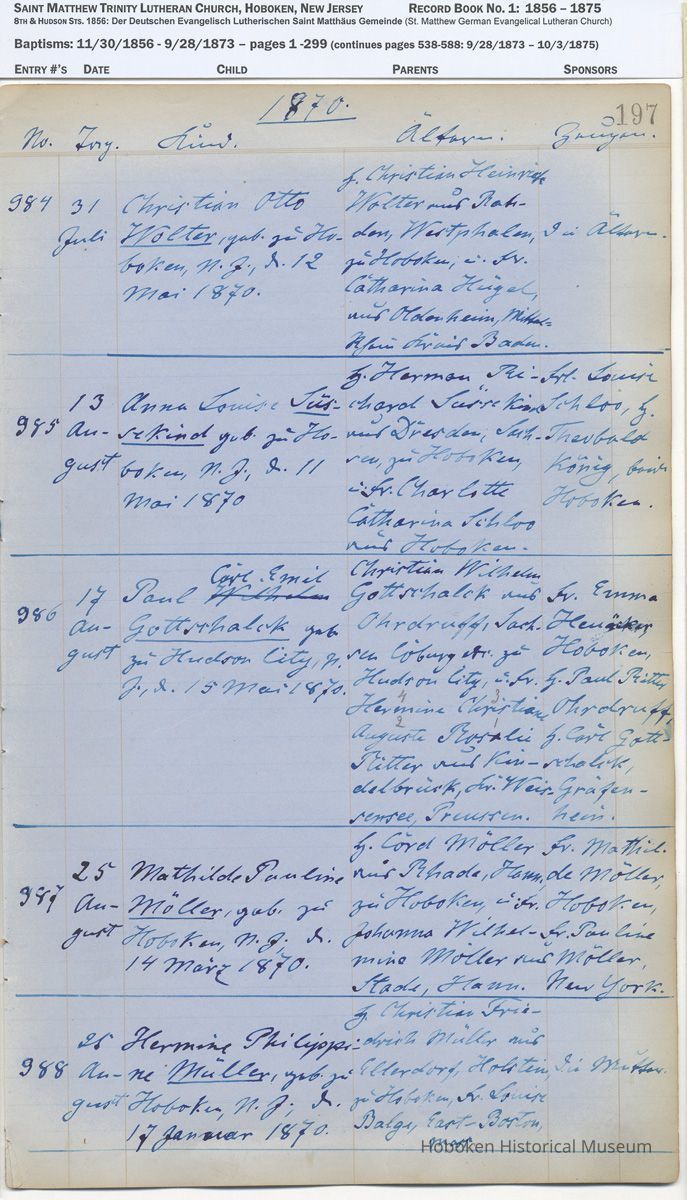 SAINT MATTHEW TRINITY LUTHERAN CHURCH, HOBOKEN, NEW JERSEY RECORD BOOK NO. 1: 1856 – 1875
8TH & HUDSON STS. 1856: Der Deutschen Evangelisch Lutherischen Saint Matthäus Gemeinde (St. Matthew German Evangelical Lutheran Church)
Baptisms: 11/30/1856 - 9/28/1873 – pages 1 -299 (continues pages 538-588: 9/28/1873 – 10/3/1875)
ENTRY #'S DATE CHILD PARENTS SPONSORS
1870.
197
No. Tag. Kind. Ältern. Zeugen.
984
31
Juli
Christian Otto
Wolter, geb. zu Ho-
boken, N. J., d. 12
Mai 1870.
H. Christian Heinrich
Wolter aus Rah-
den, Westphalen,
zu Hoboken, u. Fr.
Catharina Hügel,
aus Oldenheim, Mittel-
Rhein Kreis Baden.
Die Ältern.
985
13
Au-
gust
Anna Louise Süs-
sekind geb. zu Ho-
boken, N. J., d. 11
Mai 1870
H. Herman Ri-
chard Süssekind
aus Dresden, Sach-
sen, zu Hoboken,
u. Fr. Charlotte
Catharina Schloo
aus Hoboken.
Frl. Louise
Schloo, H.
Theobald
König, beide
Hoboken.
986
17
Au-
gust
Carl Emil
Paul Wilhelm
Gottschalck geb.
zu Hudson City, N.
J., d. 15 Mai 1870.
Christian Wilhelm
Gottschalck aus
Ohrdruff, Sach-
sen Coburg etc. zu
Hudson City, u. Fr.
4 3
Hermine Christiane
2 1
Auguste Rosalie
Ritter aus Kin-
delbrück, Kr. Weis-
sensee, Preussen.
Fr. Emma
Hoboken,
H. Paul Ritter
Ohrdruff,
H. Carl Gott-
schalck,
Gräfen-
hein.
987
25
Au-
gust
Mathilde Pauline
Möller, geb. zu
Hoboken, N. J. d.
14 März 1870.
H. Cörd Möller
aus Rhade, Hann,
zu Hoboken, u. Fr.
Johanna Wilhel-
mina Möller aus
Stade, Hann.
Fr. Mathil-
de Möller,
Hoboken,
Fr. Pauline
Möller,
New York.
988
25
Au-
gust
Hermine Philippi-
ne Müller, geb. zu
Hoboken, N. J., d.
17 Januar 1870.
H. Christian Frie-
drich Müller aus
Ellerdorf, Holstein,
zu Hoboken, Fr. Louise
Balge, East-Boston,
Mass.
Die Mutter.
Hoboken Historical Museum